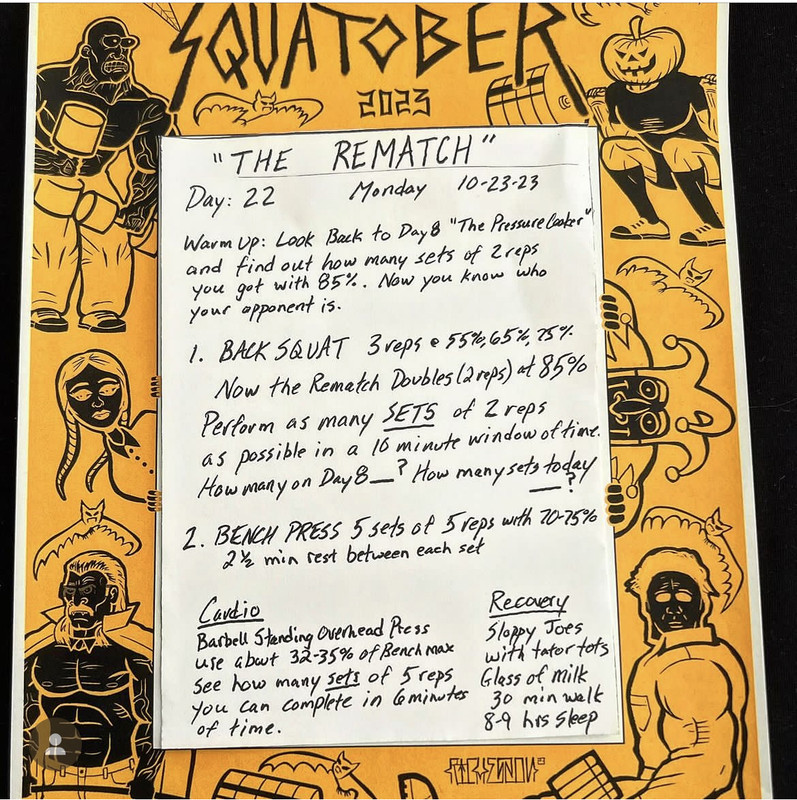 SQUATOBER
2023
"THE REMATCH"
Day: 22 Monday 10-23-23
Warm Up: Look Back to Day 8 "The Pressure Cooker"
and find out how many sets of 2 reps
you got with 85%. Now you know who
your opponent is.
1. BACK SQUAT 3 reps @ 55%, 65%, 75%
Now the Rematch Doubles (2 reps) at 85%
Perform as many SETS of 2 reps
as possible in a 10 minute window of time.
How many on Day 8 __? How many sets today
__?
2. BENCH PRESS 5 sets of 5 reps with 70-75%
2 ½ min rest between each set
Cardio
Barbell Standing Overhead Press
use about 32-35% of Bench max
See how many sets of 5 reps
you can complete in 6 minutes
of time.
Recovery
Sloppy Joes
with tator tots
Glass of milk
30 min walk
8-9 hrs sleep